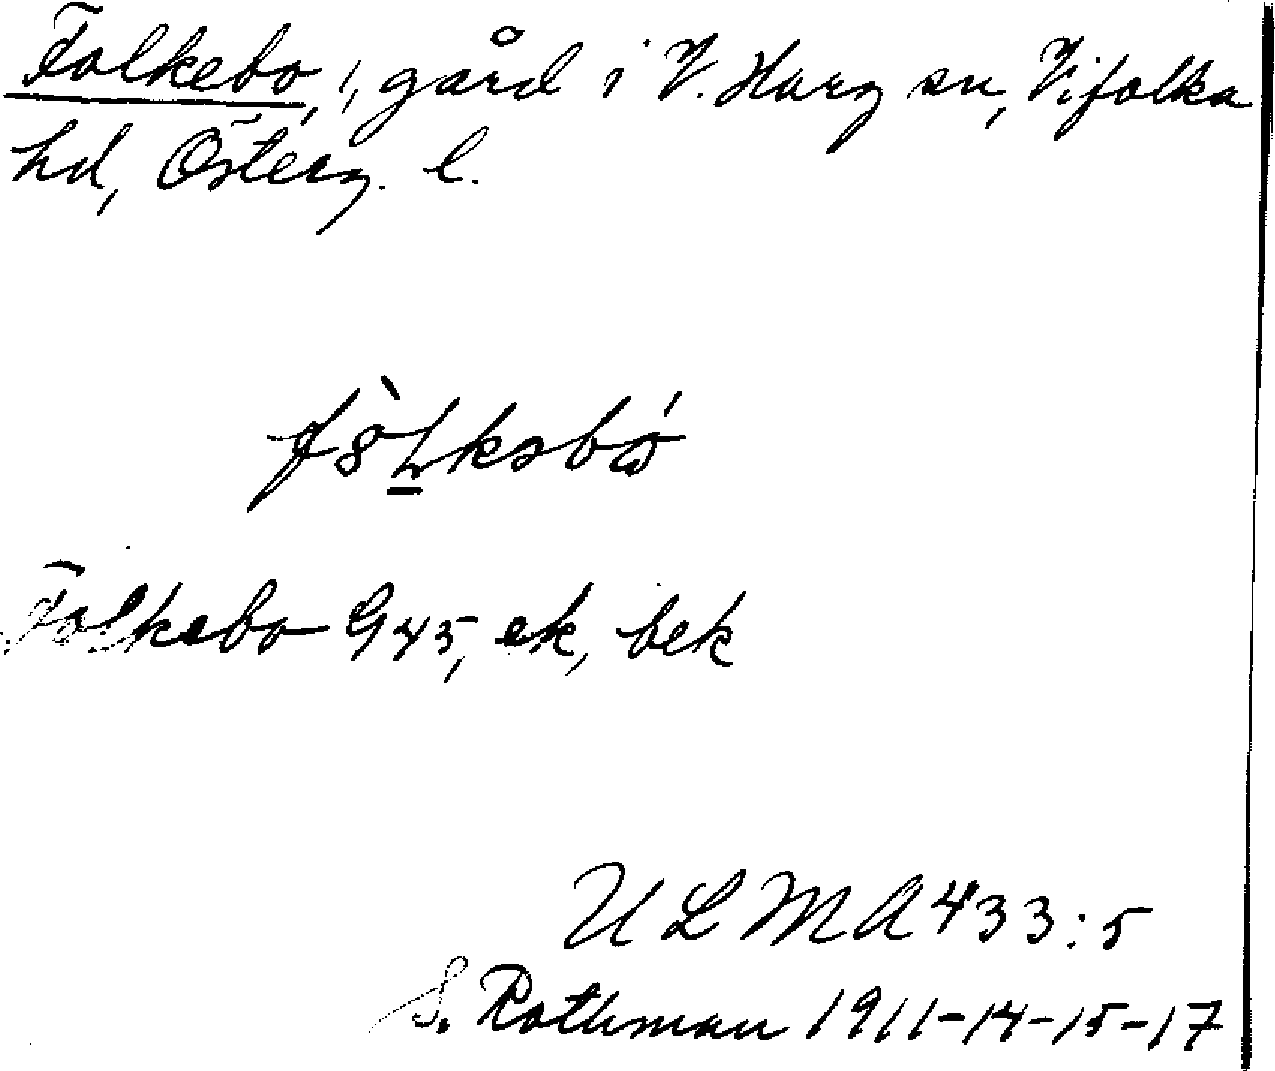 Folkebo, !, gård i V. Harg sn, Vifolka
hd, Österg. l.
Folkebo G 45, ek, bek
ULMA 433:5
S. Rothman 1911-14-15-17